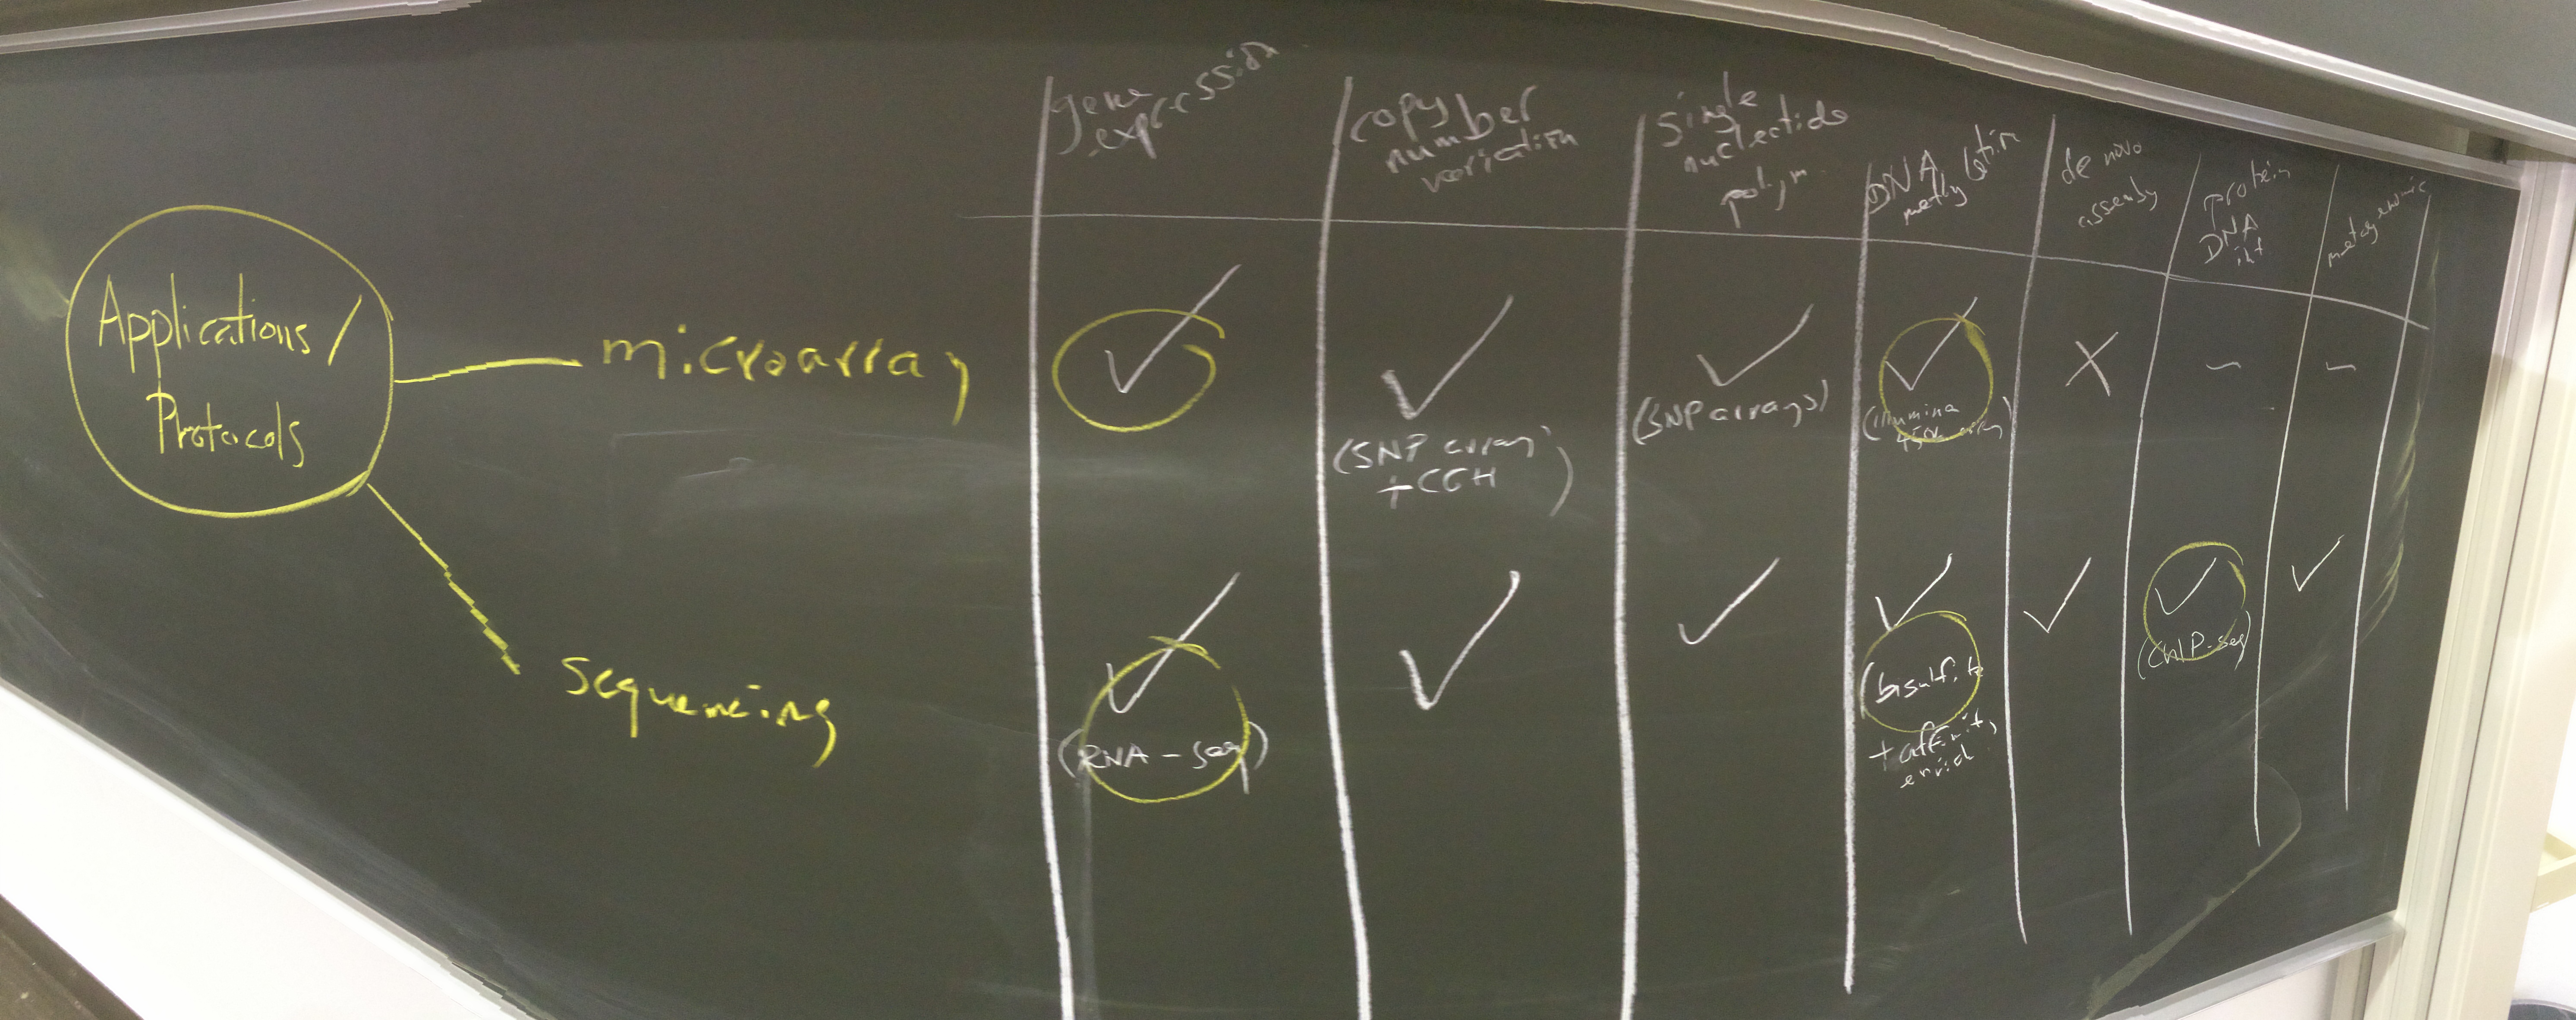 Applications /
Protocols
microarray
sequencing
gene
expression
copy
number
variation
single
nucleotide
polym.
DNA
methylation
de novo
assembly
protein
DNA
int
metagenomic
✓
✓
(SNP array
+ CGH)
✓
(SNP arrays)
✓
(illumina
450k array)
X
~
~
✓
(RNA-seq)
✓
✓
✓
(bisulfite
+ affinity
enrich)
✓
✓
(ChIP-seq)
✓